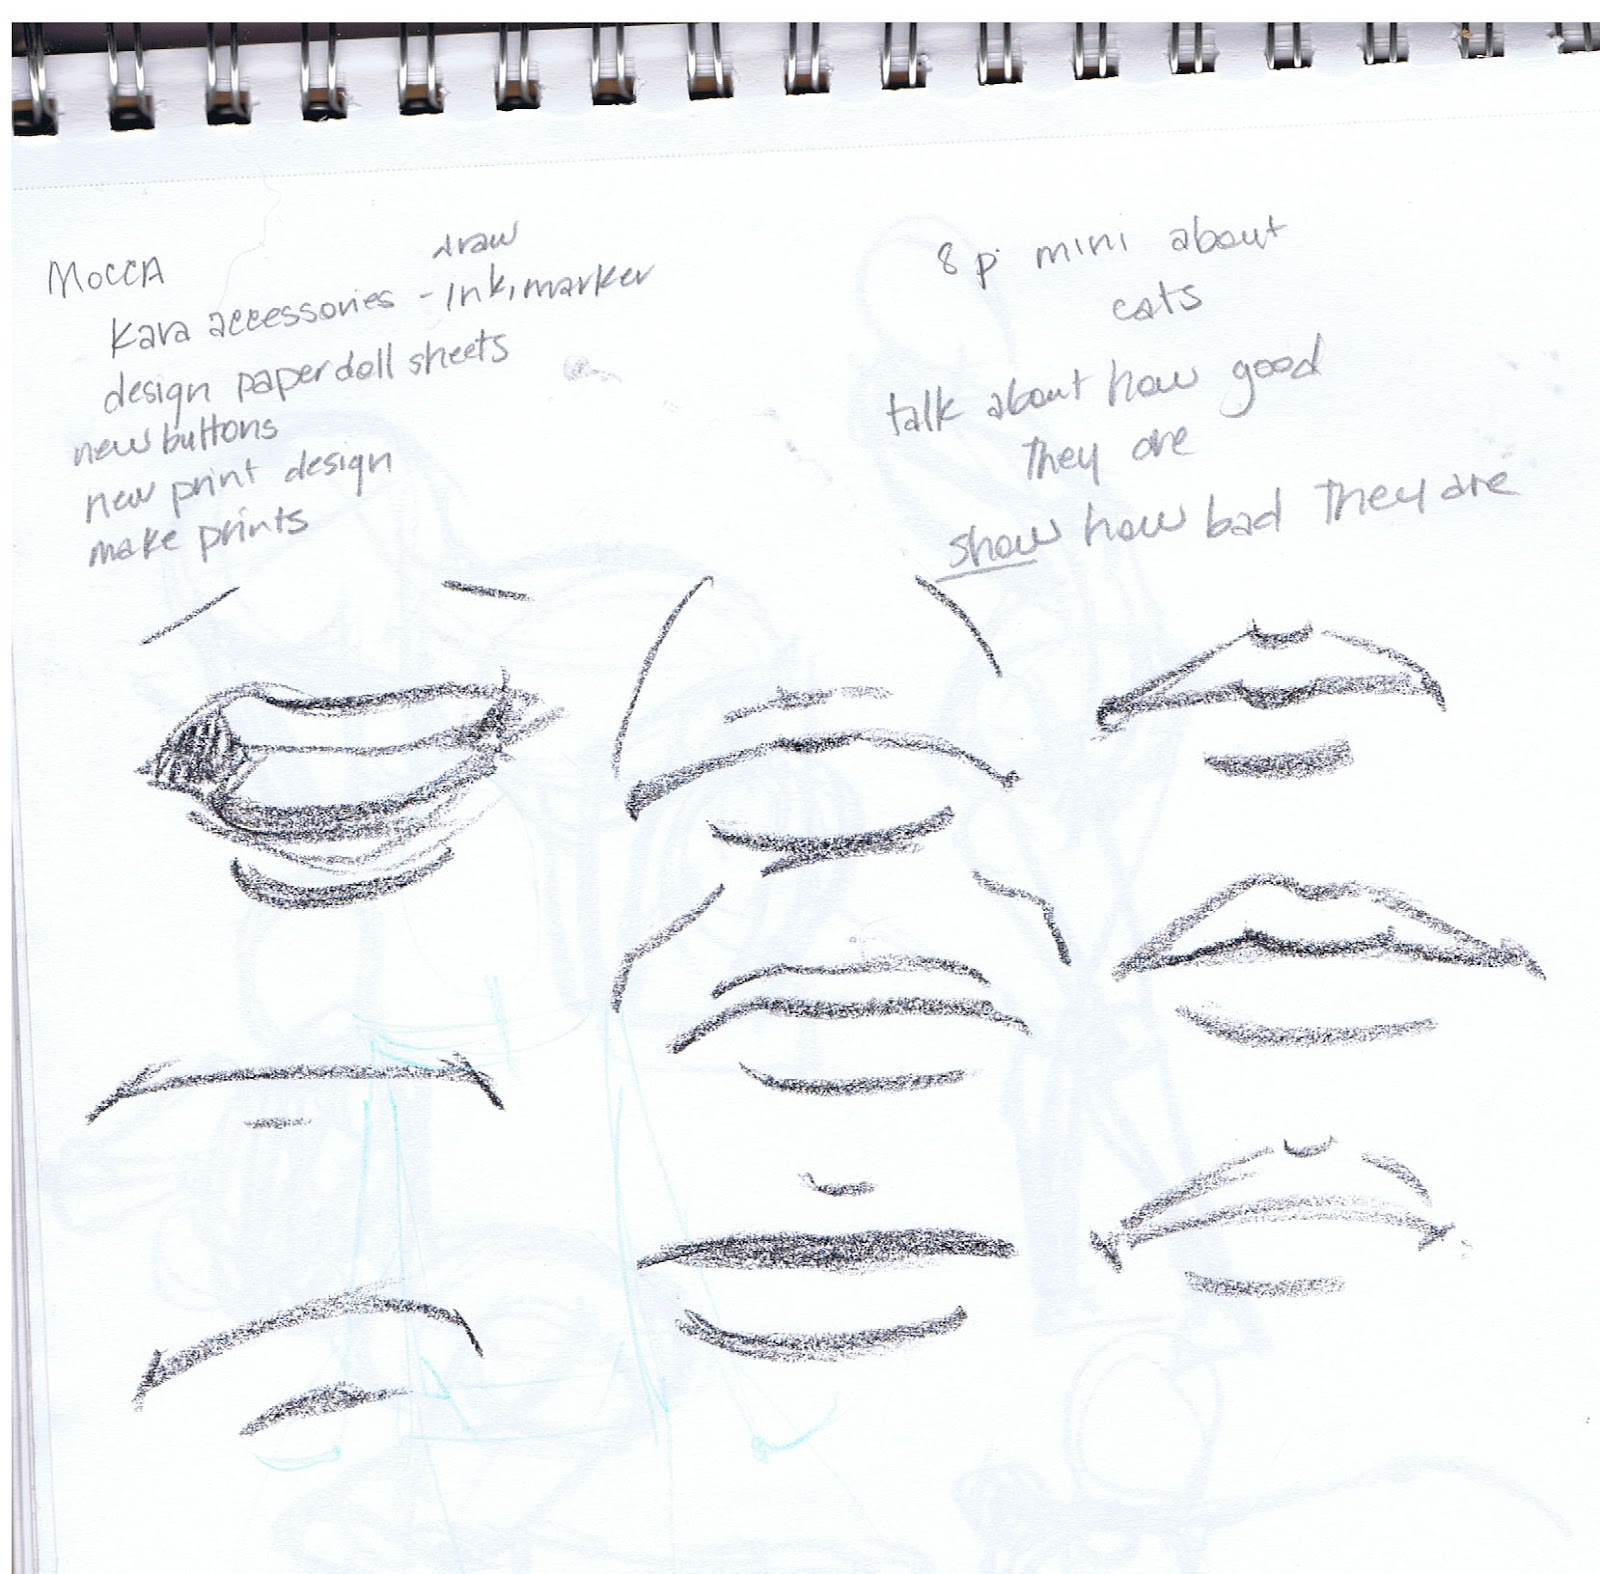 MOCCA
draw
Kara accessories - ink, marker
design paperdoll sheets
new buttons
new print design
make prints
8 p. mini about
cats
talk about how good
they are
show how bad they are